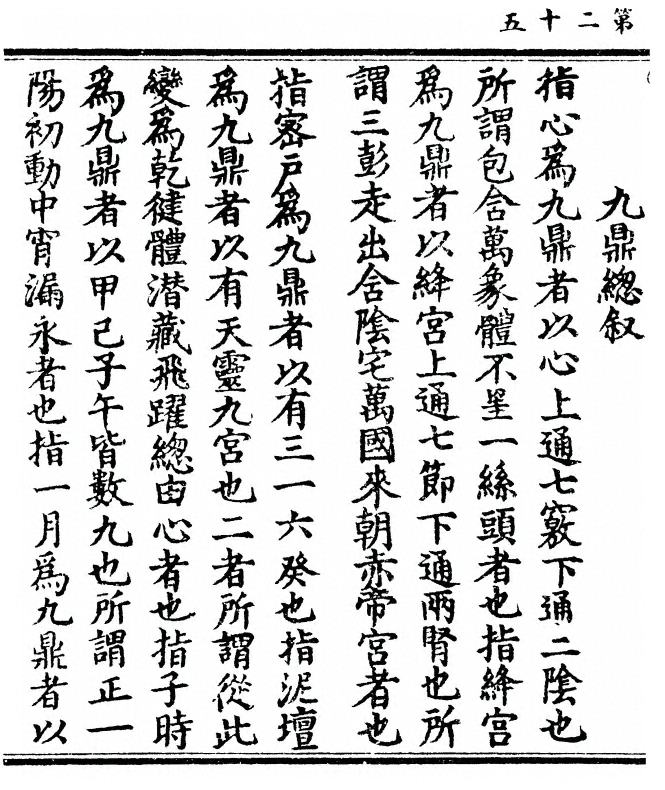 第二十五
九鼎總叙
指心為九鼎者以心上通七竅下通二陰也
所謂包含萬象體不星一絲頭者也指絳宮
為九鼎者以絳宮上通七節下通兩腎也所
謂三彭走出舍陰宅萬國來朝赤帝宮者也
指密戶為九鼎者以有三一六癸也指泥壇
為九鼎者以有天靈九宮也二者所謂從此
變為乾健體潜藏飛躍總由心者也指子時
為九鼎者以甲己子午皆數九也所謂正一
陽初動中宵漏永者也指一月為九鼎者以